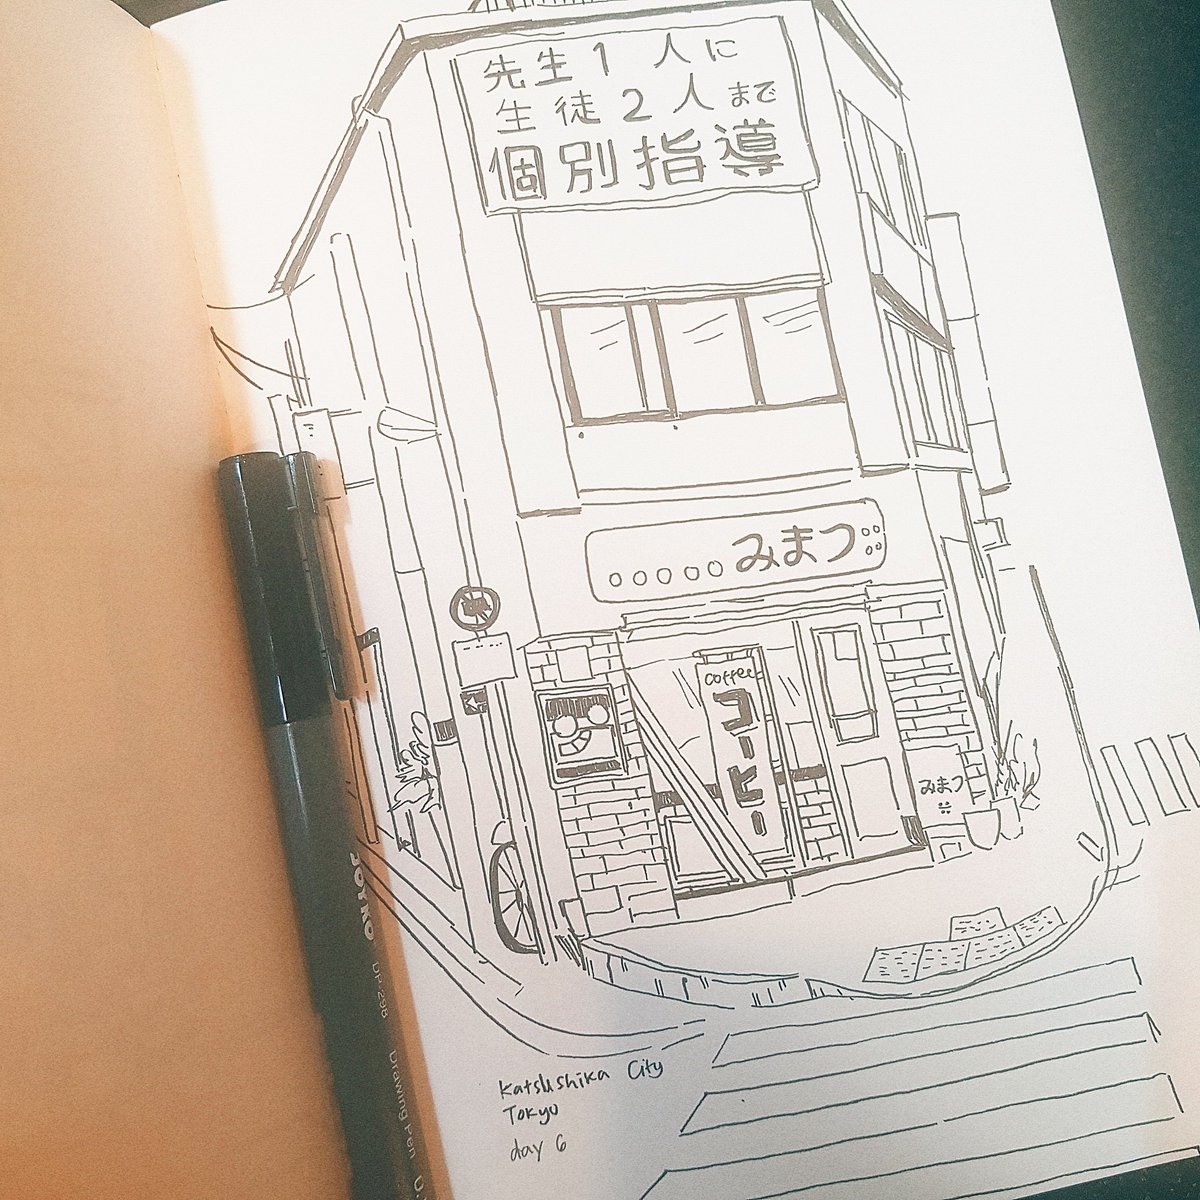 先生1人に
生徒2人まで
個別指導
みまつ
coffee
コーヒー
みまつ
Katsushika City
Tokyo
day 6
JOYKO
DP-298
Drawing Pen